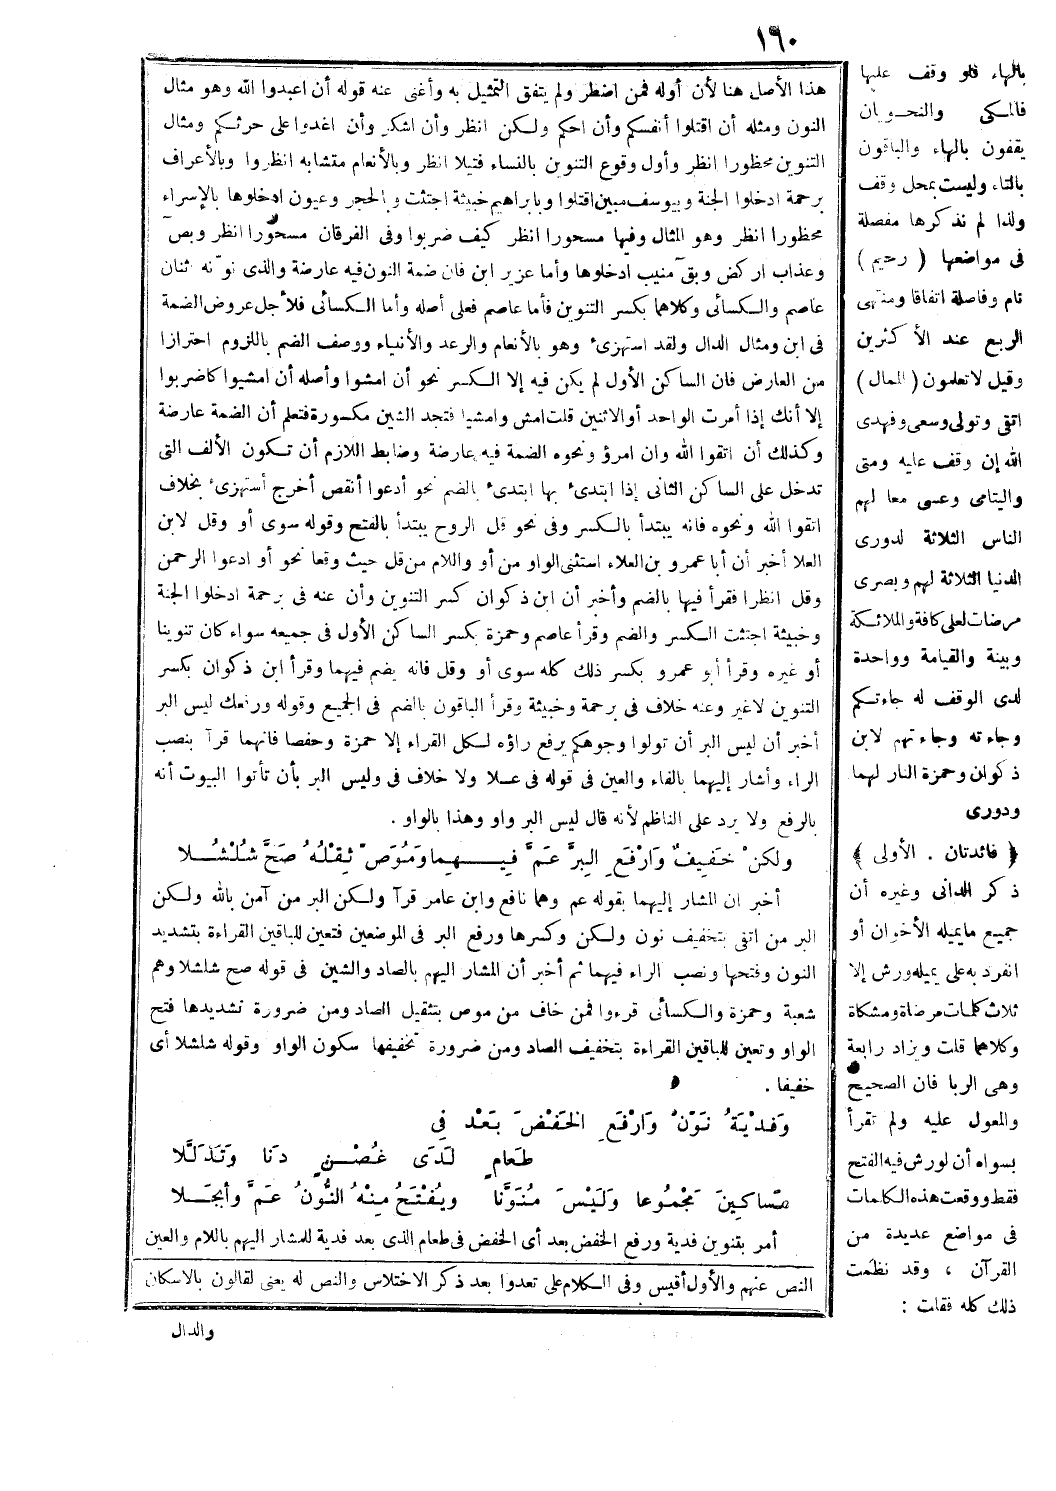 ١٦٠
هذا الأصل هنا لأن أوله فمن اضطر ولم يتفق التمثيل به وأغنى عنه قوله أن اعبدوا الله وهو مثال
النون ومثله أن اقتلوا أنفسكم وأن احكم ولكن انظر وأن اشكر وأن اغدوا على حرثكم ومثال
التنوين محظورا انظر وأول وقوع التنوين بالنساء فتيلا انظر وبالأنعام متشابه انظروا وبالأعراف
برحمة ادخلوا الجنة وبيوسف مبين اقتلوا وبابراهيم خبيثة اجتثت وبالحجر وعيون ادخلوها بالإسراء
محظورا انظر وهو المثال وفيها مسحورا انظر كيف ضربوا وفى الفرقان مسحورا انظر وبص~
وعذاب اركض وبق~ منيب ادخلوها وأما عزير ابن فان ضمة النون فيه عارضة والذى نونه ثنان
عاصم والكسائى وكلاهما بكسر التنوين فأما عاصم فعلى أصله وأما الكسائى فلأجل عروض الضمة
فى ابن ومثال الدال ولقد استهزىء وهو بالأنعام والرعد والأنبياء ووصف الضم باللزوم احترازا
من العارض فان الساكن الأول لم يكن فيه إلا الكسر نحو أن امشوا وأصله أن امشيوا كاضربوا
إلا أنك إذا أمرت الواحد أو الاثنين قلت امش وامشيا فتجد الشين مكسورة فتعلم أن الضمة عارضة
وكذلك أن اتقوا الله وان امرؤ ونحوه الضمة فيه عارضة وضابط اللازم أن تكون الألف التى
تدخل على الساكن الثانى إذا ابتدىء بها ابتدىء بالضم نحو أدعوا أنقص أخرج أستهزىء بخلاف
اتقوا الله ونحوه فانه يبتدأ بالكسر وفى نحو قل الروح يبتدأ بالفتح وقوله سوى أو وقل لابن
العلا أخبر أن أبا عمرو بن العلاء استثنى الواو من أو واللام من قل حيث وقعا نحو أو ادعوا الرحمن
وقل انظرا فقرأ فيها بالضم وأخبر أن ابن ذكوان كسر التنوين وأن عنه فى برحمة ادخلوا الجنة
وخبيثة اجتثت الكسر والضم وقرأ عاصم وحمزة بكسر الساكن الأول فى جميعه سواء كان تنوينا
أو غيره وقرأ أبو عمرو بكسر ذلك كله سوى أو وقل فانه يضم فيهما وقرأ ابن ذكوان بكسر
التنوين لاغير وعنه خلاف فى برحمة وخبيثة وقرأ الباقون بالضم فى الجميع وقوله ورفعك ليس البر
أخبر أن ليس البر أن تولوا وجوهكم يرفع راؤه لكل القراء إلا حمزة وحفصا فانهما قرآ بنصب
الراء وأشار إليهما بالفاء والعين فى قوله فى علا ولا خلاف فى وليس البر بأن تأتوا البيوت أنه
بالرفع ولا يرد على الناظم لأنه قال ليس البر واو وهذا بالواو .
ولكن خَفِيفٌ وَارْفَعِ البِرَّ عَمَّ فِيــهِما وَمُوَصٍّ ثِقْلُهُ صَحَّ شُلْشُلا
أخبر ان المشار إليهما بقوله عم وهما نافع وابن عامر قرآ ولكن البر من آمن بالله ولكن
البر من اتقى بتخفيف نون ولكن وكسرها ورفع البر فى الموضعين فتعين للباقين القراءة بتشديد
النون وفتحها ونصب الراء فيهما ثم أخبر أن المشار اليهم بالصاد والشين فى قوله صح شلشلا وهم
شعبة وحمزة والكسائى قرءوا فمن خاف من موص بتثقيل الصاد ومن ضرورة تشديدها فتح
الواو وتعين للباقين القراءة بتخفيف الصاد ومن ضرورة تخفيفها سكون الواو وقوله شلشلا أى
خفيفا .
وَفِدْيَةُ نَوِّنْ وَارْفَعِ الخَفْضَ بَعْدُ فِى
طَعامٍ لَدَى غُصْنٍ دَنا وَتَذَلَّلا
مَساكِينَ مَجْمُوعا وَلَيْسَ مُنَوَّنا ويُفْتَحُ مِنْهُ النُّونُ عَمَّ وأبْجَلا
أمر بتنوين فدية ورفع الخفض بعد أى الخفض فى طعام الذى بعد فدية للمشار اليهم باللام والعين
النص عنهم والأول أقيس وفى الكلام على تعدوا بعد ذكر الاختلاس والنص له يعنى لقالون بالاسكان
والدال
بالهاء فلو وقف عليها
فالمكى والنحويان
يقفون بالهاء والباقون
بالتاء وليست بمحل وقف
ولذا لم نذكرها مفصلة
فى مواضعها ( رحيم )
تام وفاصلة اتفاقا ومنتهى
الربع عند الأكثرين
وقيل لاتعلمون ( الممال )
اتقى وتولى وسعى وفهدى
الله إن وقف عليه ومتى
واليتامى وعسى معا لهم
الناس الثلاثة لدورى
الدنيا الثلاثة لهم وبصرى
مرضات لعلى كافة والملائكة
وبينة والقيامة وواحدة
لدى الوقف له جاءتكم
وجاءته وجاءتهم لابن
ذكوان وحمزة النار لهما
ودورى
﴿ فائدتان . الأولى ﴾
ذكر الدانى وغيره أن
جميع مايميله الأخوان أو
انفرد به على يميله ورش إلا
ثلاث كلمات مرضاة ومشكاة
وكلاهما قلت ويزاد رابعة
وهى الربا فان الصحيح
والمعول عليه ولم نقرأ
بسواه أن لورش فيه الفتح
فقط ووقعت هذه الكلمات
فى مواضع عديدة من
القرآن ، وقد نظمت
ذلك كله فقلت :